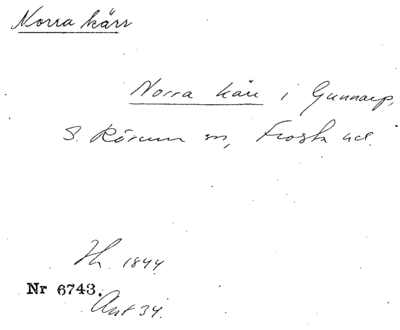 Norra kärr
Norra kärr i Gunnarp,
S. Rörum sn, Frosta hd.
Th. 1844
Nr 6743.
Ant 34.